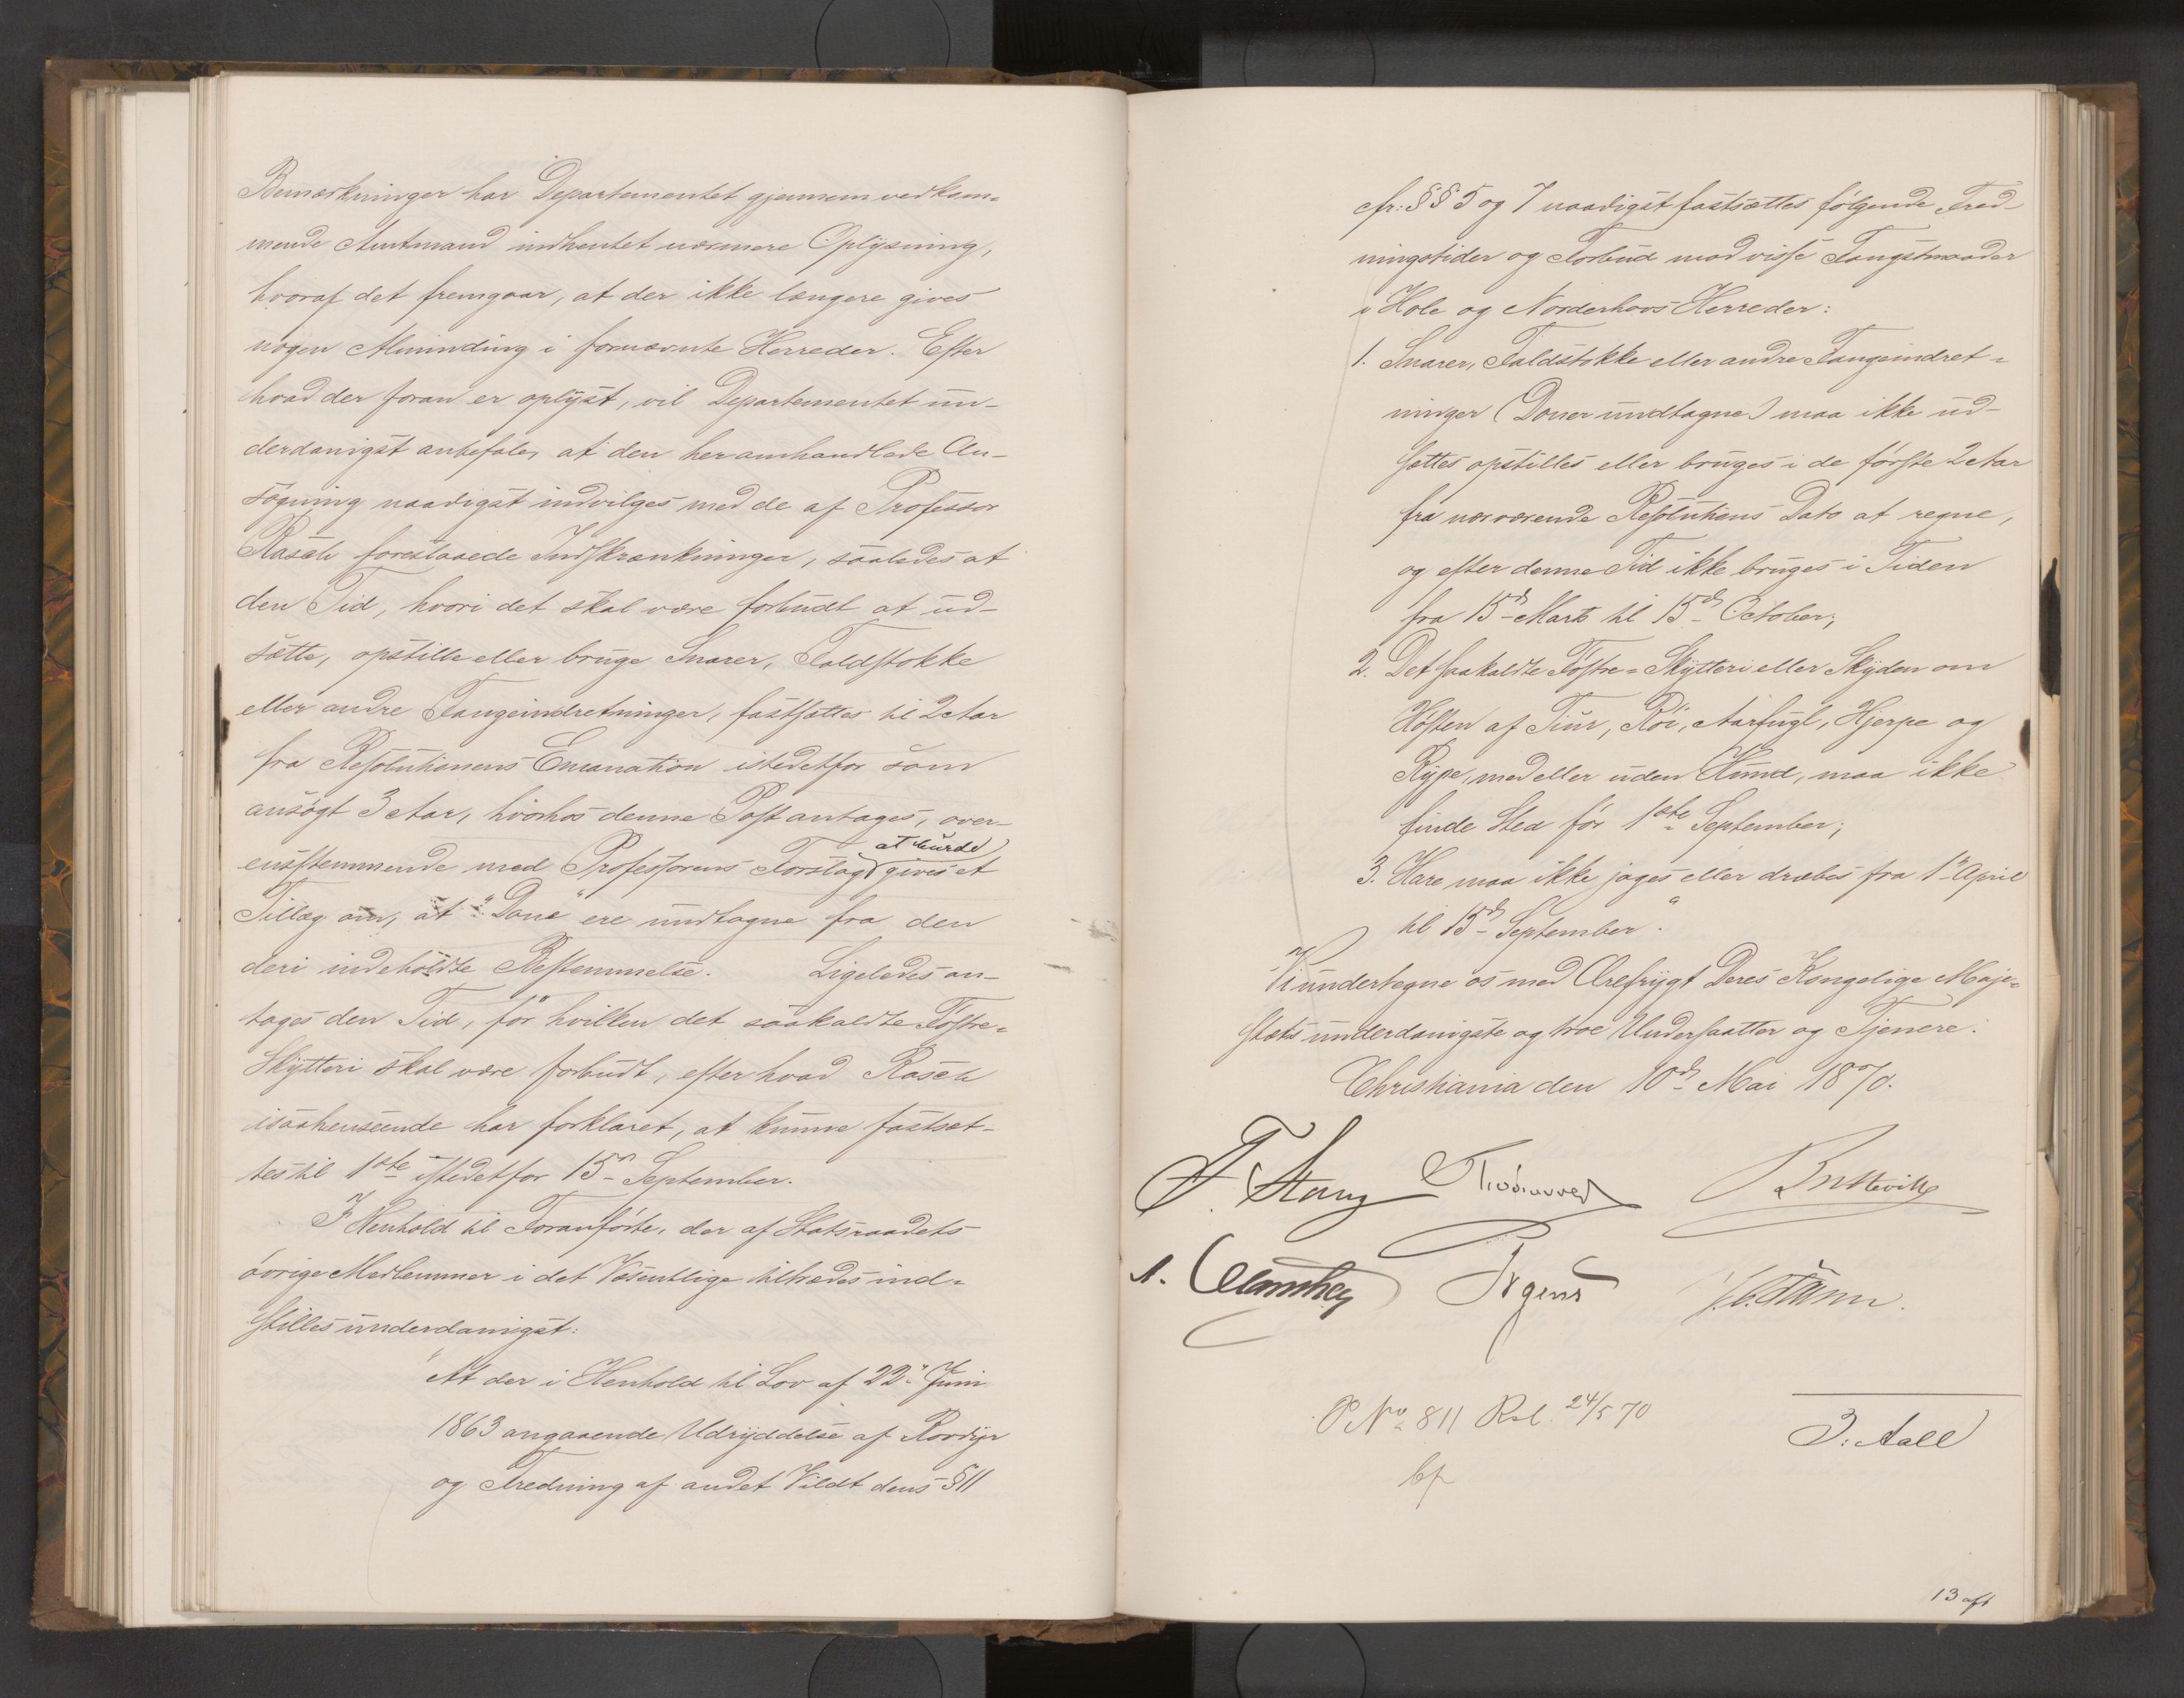 Bemærkninger har Departementet gjennem vedkom-
mende Amtmand indhentet nærmere Oplysning,
hvoraf det fremgaar, at der ikke længere gives
nogen Alminding i fornævnte Herreder. Efter
hvad der foran er oplyst, vil Departementet un-
derdanigst anbefale, at den heromhandlede An-
søgning naadigst indvilges med de af Professor
Rasch foreslaaede Indskrænkninger, saaledes at
den Tid, hvori det skal være forbudt at ud-
sætte, opstille eller bruge Snarer, Faldstokke
eller andre Fangeindretninger, fastsættes til 2 Aar
fra Resolutionens Emanation istedetfor som
ansøgt 3 Aar, hvorhos denne Post antages, over-
ensstemmende med Professorens Forslag at burde gives et
Tillæg om, at "Done" ere undtagne fra den
deri indeholdte Bestemmelse. Ligeledes an-
tages den Tid, før hvilken det saakaldte Føstre-
Skytteri skal være forbudt, efter hvad Rasch
isaahenseende har forklaret, at kunne fastsæt-
tes til 1ste istedetfor 15de September.
I Henhold til Foranførte, der af Statsraadets
øvrige Medlemmer i det Væsentlige tiltrædes ind-
stilles underdanigst:
"At der i Henhold til Lov af 22de Juni
1863 angaaende Udryddelse af Rovdyr
og Fredning af andet Vildt dens § 11
cfr: §§ 5 og 7 naadigst fastsættes følgende Fred-
ningstider og Forbud mod visse Fangstmaader
i Hole og Norderhovs Herreder:
1. Snarer, Faldstokke eller andre Fangeindret-
ninger (Doner undtagne) maa ikke ud-
sættes opstilles eller bruges i de første 2 Aar
fra nærværende Resolutions Dato at regne,
og efter denne Tid ikke bruges i Tiden
fra 15de Marts til 15de October;
2. Det saakaldte Føstre-Skytteri eller Skyden om
Høsten af Tiur, Røi, Aarfugl, Hjerpe og
Rype, med eller uden Hund, maa ikke
finde Sted før 1ste September;
3. Hare maa ikke jages eller dræbes fra 1ste April
til 15de September."
Vi undertegne os med Ærefrygt Deres Kongelige Maje-
stæts underdanigste og troe Undersaatter og Tjenere.
Christiania den 10de Mai 1870.
F. Stang Bretteville
Irgens
PNo 811 Rsl. 24/5 70
J. Aall
13 aft